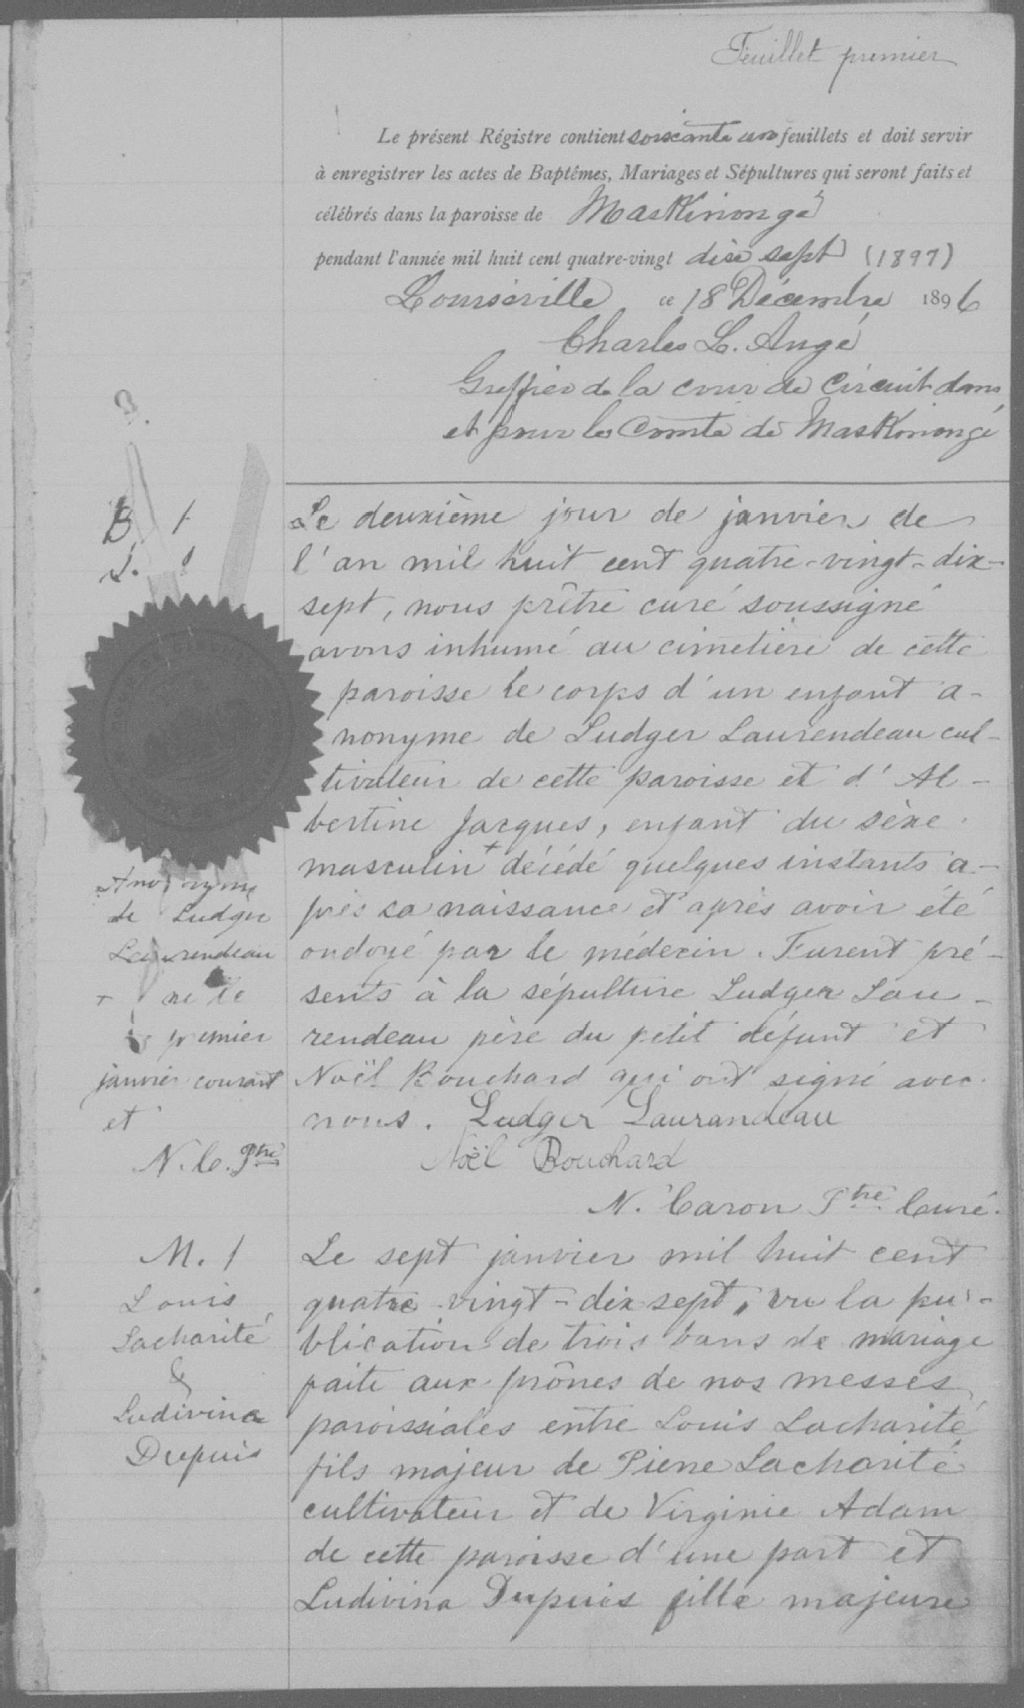 Feuillet premier
Le présent Régistre contient soixante un feuillets et doit servir
à enregistrer les actes de Baptêmes, Mariages et Sépultures qui seront faits et
célébrés dans la paroisse de Maskinongé
pendant l'année mil huit cent quatre-vingt dix sept (1897)
Louiseville ce 18 Décembre 1896
Charles L. Augé
Greffier de la cour de Circuit dans
et pour le Comté de Maskinongé
B. 1
S. 1
Le deuxième jour de janvier de
l'an mil huit cent quatre-vingt-dix-
sept, nous prêtre curé soussigné
avons inhumé au cimetière de cette
paroisse le corps d'un enfant a-
nonyme de Ludger Laurendeau cul-
tivateur de cette paroisse et d'Al-
bertine Jacques, enfant du sèxe
masculin + décédé quelques instants a-
près sa naissance et après avoir été
ondoyé par le médecin. Furent pré-
sents à la sépulture Ludger Lau-
rendeau père du petit défunt et
Noël Bouchard qui ont signé avec
nous. Ludger Laurandeau
Noël Bouchard
N. Caron Ptre Curé.
Anonyme
de Ludger
Laurendeau
+ né le
premier
janvier courant
et
N. C. Ptre
M. 1
Louis
Lacharité
&
Ludivina
Dupuis
Le sept janvier mil huit cent
quatre-vingt-dix sept, vu la pu-
blication de trois bans de mariage
faite aux prônes de nos messes
paroissiales entre Louis Lacharité
fils majeur de Pierre Lacharité
cultivateur et de Virginie Adam
de cette paroisse d'une part et
Ludivina Dupuis fille majeure